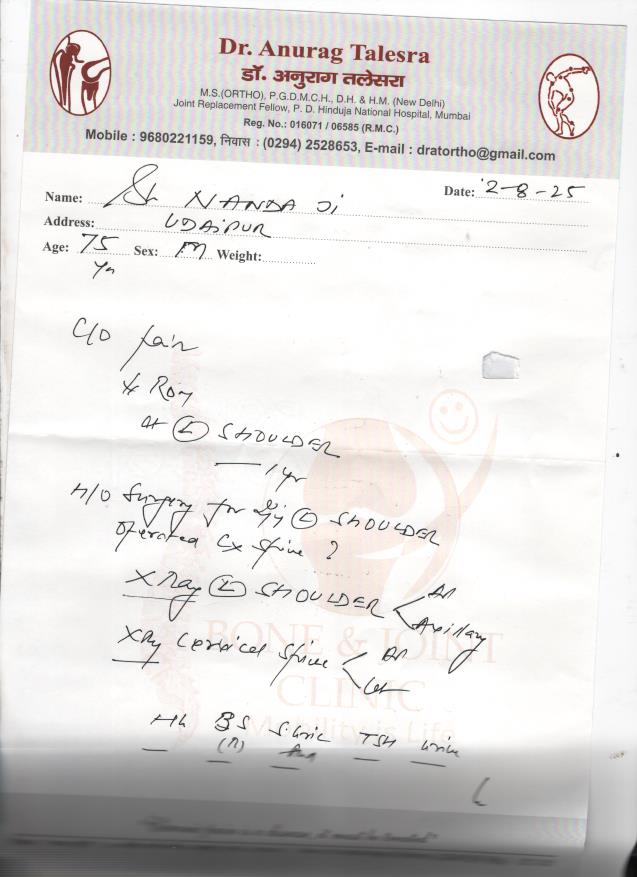 Dr. Anurag Talesra
डॉ. अनुराग तलेसरा
M.S.(ORTHO), P.G.D.M.C.H., D.H. & H.M. (New Delhi)
Joint Replacement Fellow, P. D. Hinduja National Hospital, Mumbai
Reg. No.: 016071 / 06585 (R.M.C.)
Mobile : 9680221159, निवास : (0294) 2528653, E-mail : dratortho@gmail.com
Name: Sh NANDA Ji Date: 2-8-25
Address: UDAIPUR
Age: 75 Sex: M Weight:
Yr
C/O Pain
↓ ROM
at (L) SHOULDER
1 yr
H/O Surgery for (L) SHOULDER
Operated Cx Spine ?
X Ray (L) SHOULDER AP
Axillary
X Ray Cervical Spine AP
Lat
BONE & JOINT
CLINIC
Mobility is Life
Hb BS S. Uric TSH Urine
(R) Acid